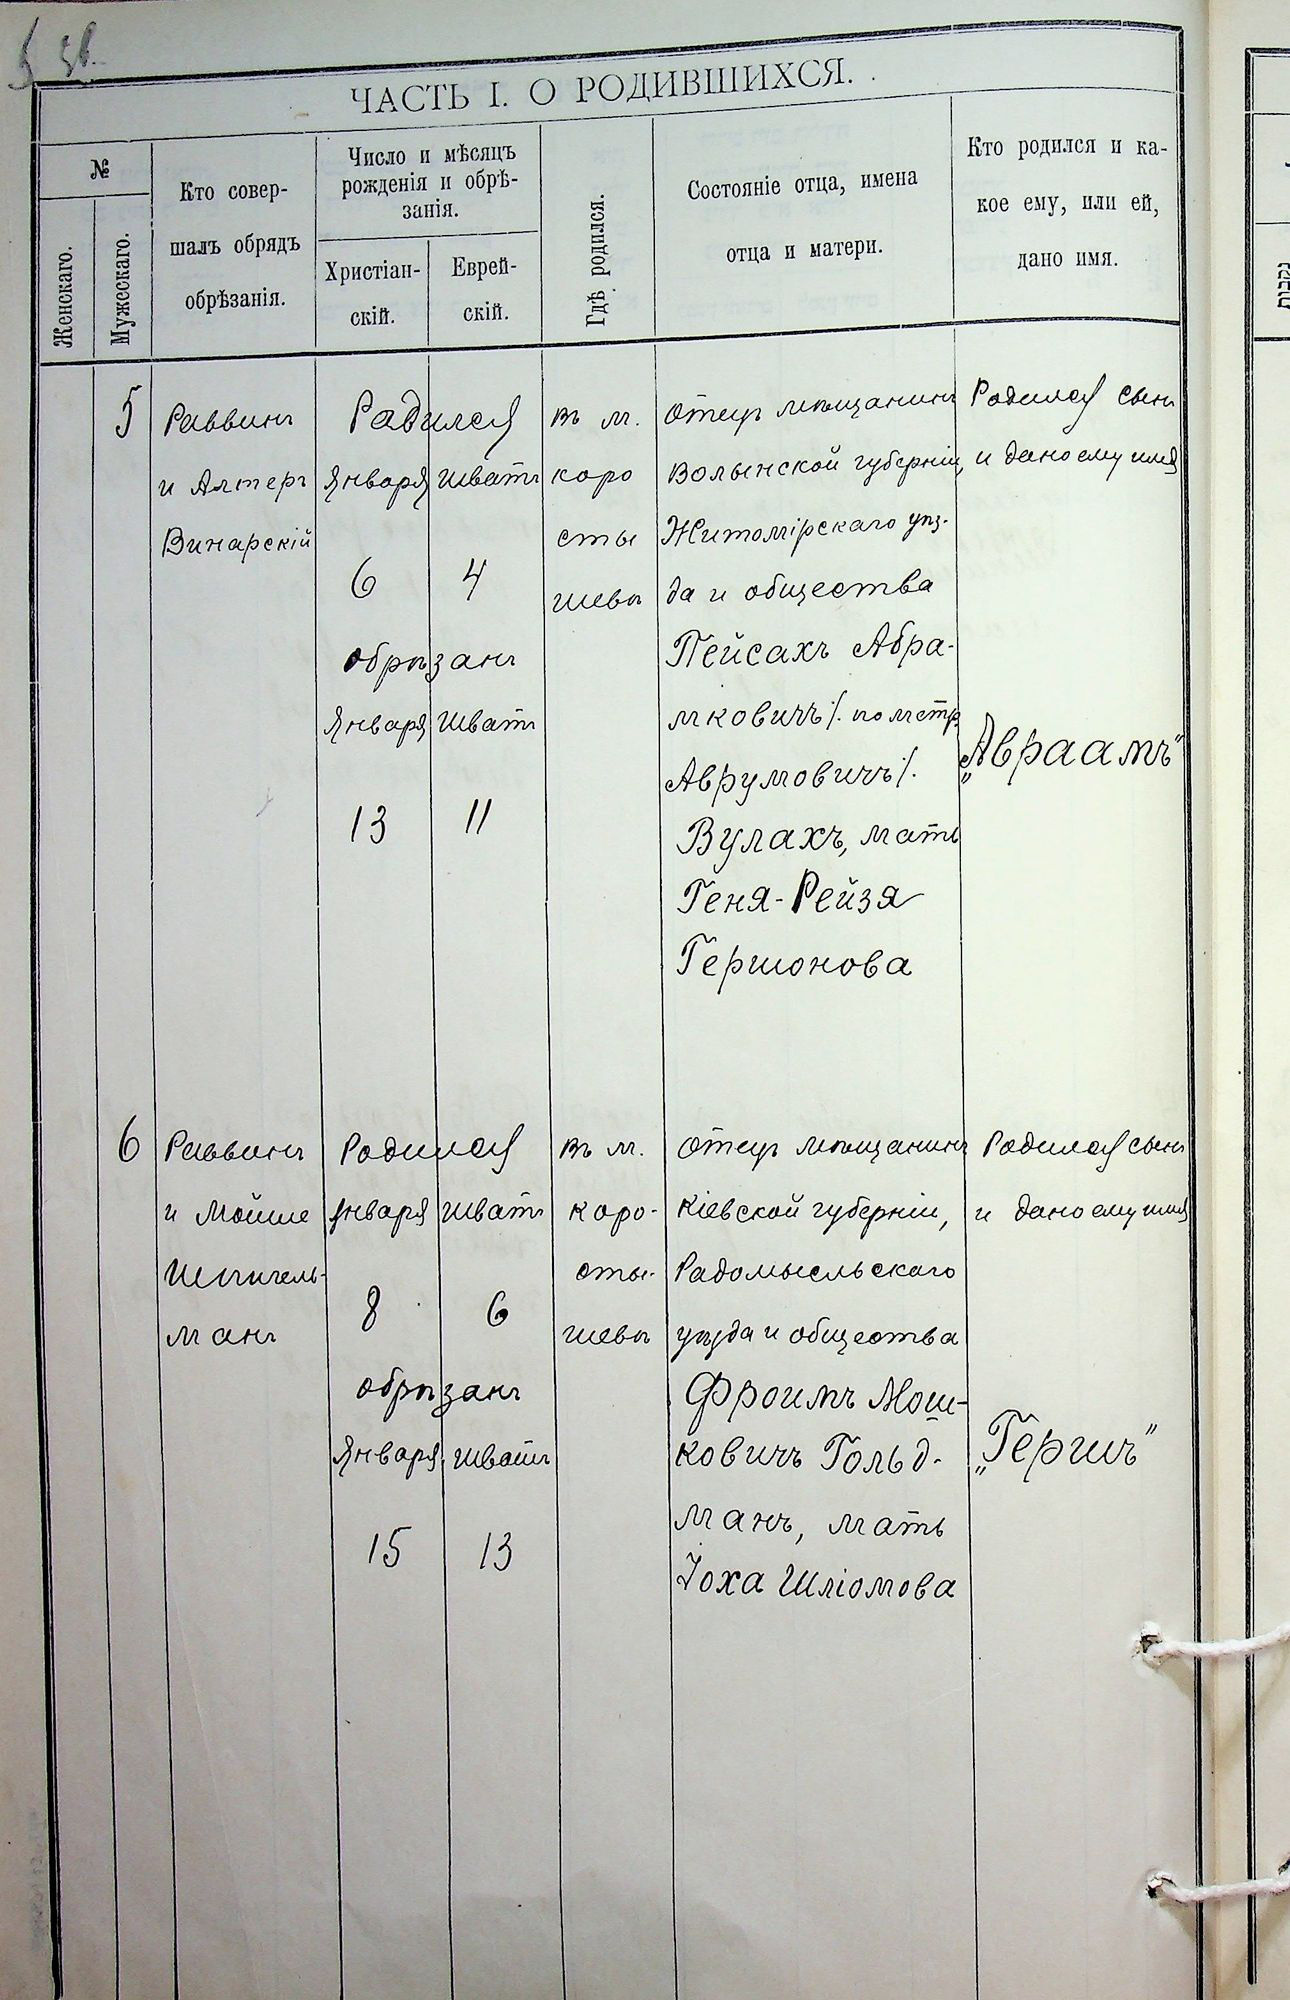 ЧАСТЬ I. О РОДИВШИХСЯ.
№
Женскаго.
Мужескаго.
Кто совер-
шалъ обрядъ
обрѣзанія.
Число и мѣсяцъ
рожденія и обрѣ-
занія.
Христіан-
скій.
Еврей-
скій.
Гдѣ родился.
Состояніе отца, имена
отца и матери.
Кто родился и ка-
кое ему, или ей,
дано имя.
5
Раввинъ
и Алтеръ
Винарскій
Радился
Января Шватъ
6 4
обрѣзанъ
Января Шватъ
13 11
въ м.
коро
сты
шевѣ
Отецъ мѣщанинъ
Волынской губерніи,
Житомірскаго уѣз-
да и общества
Пейсахъ Абра-
мковичъ /. по метр.
Аврумовичъ /.
Вулахъ, мать
Геня-Рейзя
Гершонова
Родился сынъ
и дано ему имя
„Авраамъ"
6
Раввинъ
и Мойше
Шпигель-
манъ
Родился
Января Шватъ
8 6
обрѣзанъ
Января Шватъ
15 13
въ м.
коро-
сты-
шевѣ
Отецъ мѣщанинъ
Кіевской губерніи,
Радомысльскаго
уѣзда и общества
Фроимъ Мош-
ковичъ Гольд-
манъ, мать
Іоха Шліомова
Родился сынъ
и дано ему имя
„Гершъ"
נקבות